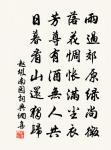 雨過郊原綠尚微
落花惆悵滿塵衣
芳尊有酒無人共
日暮看山還獨歸
趙嘏南園